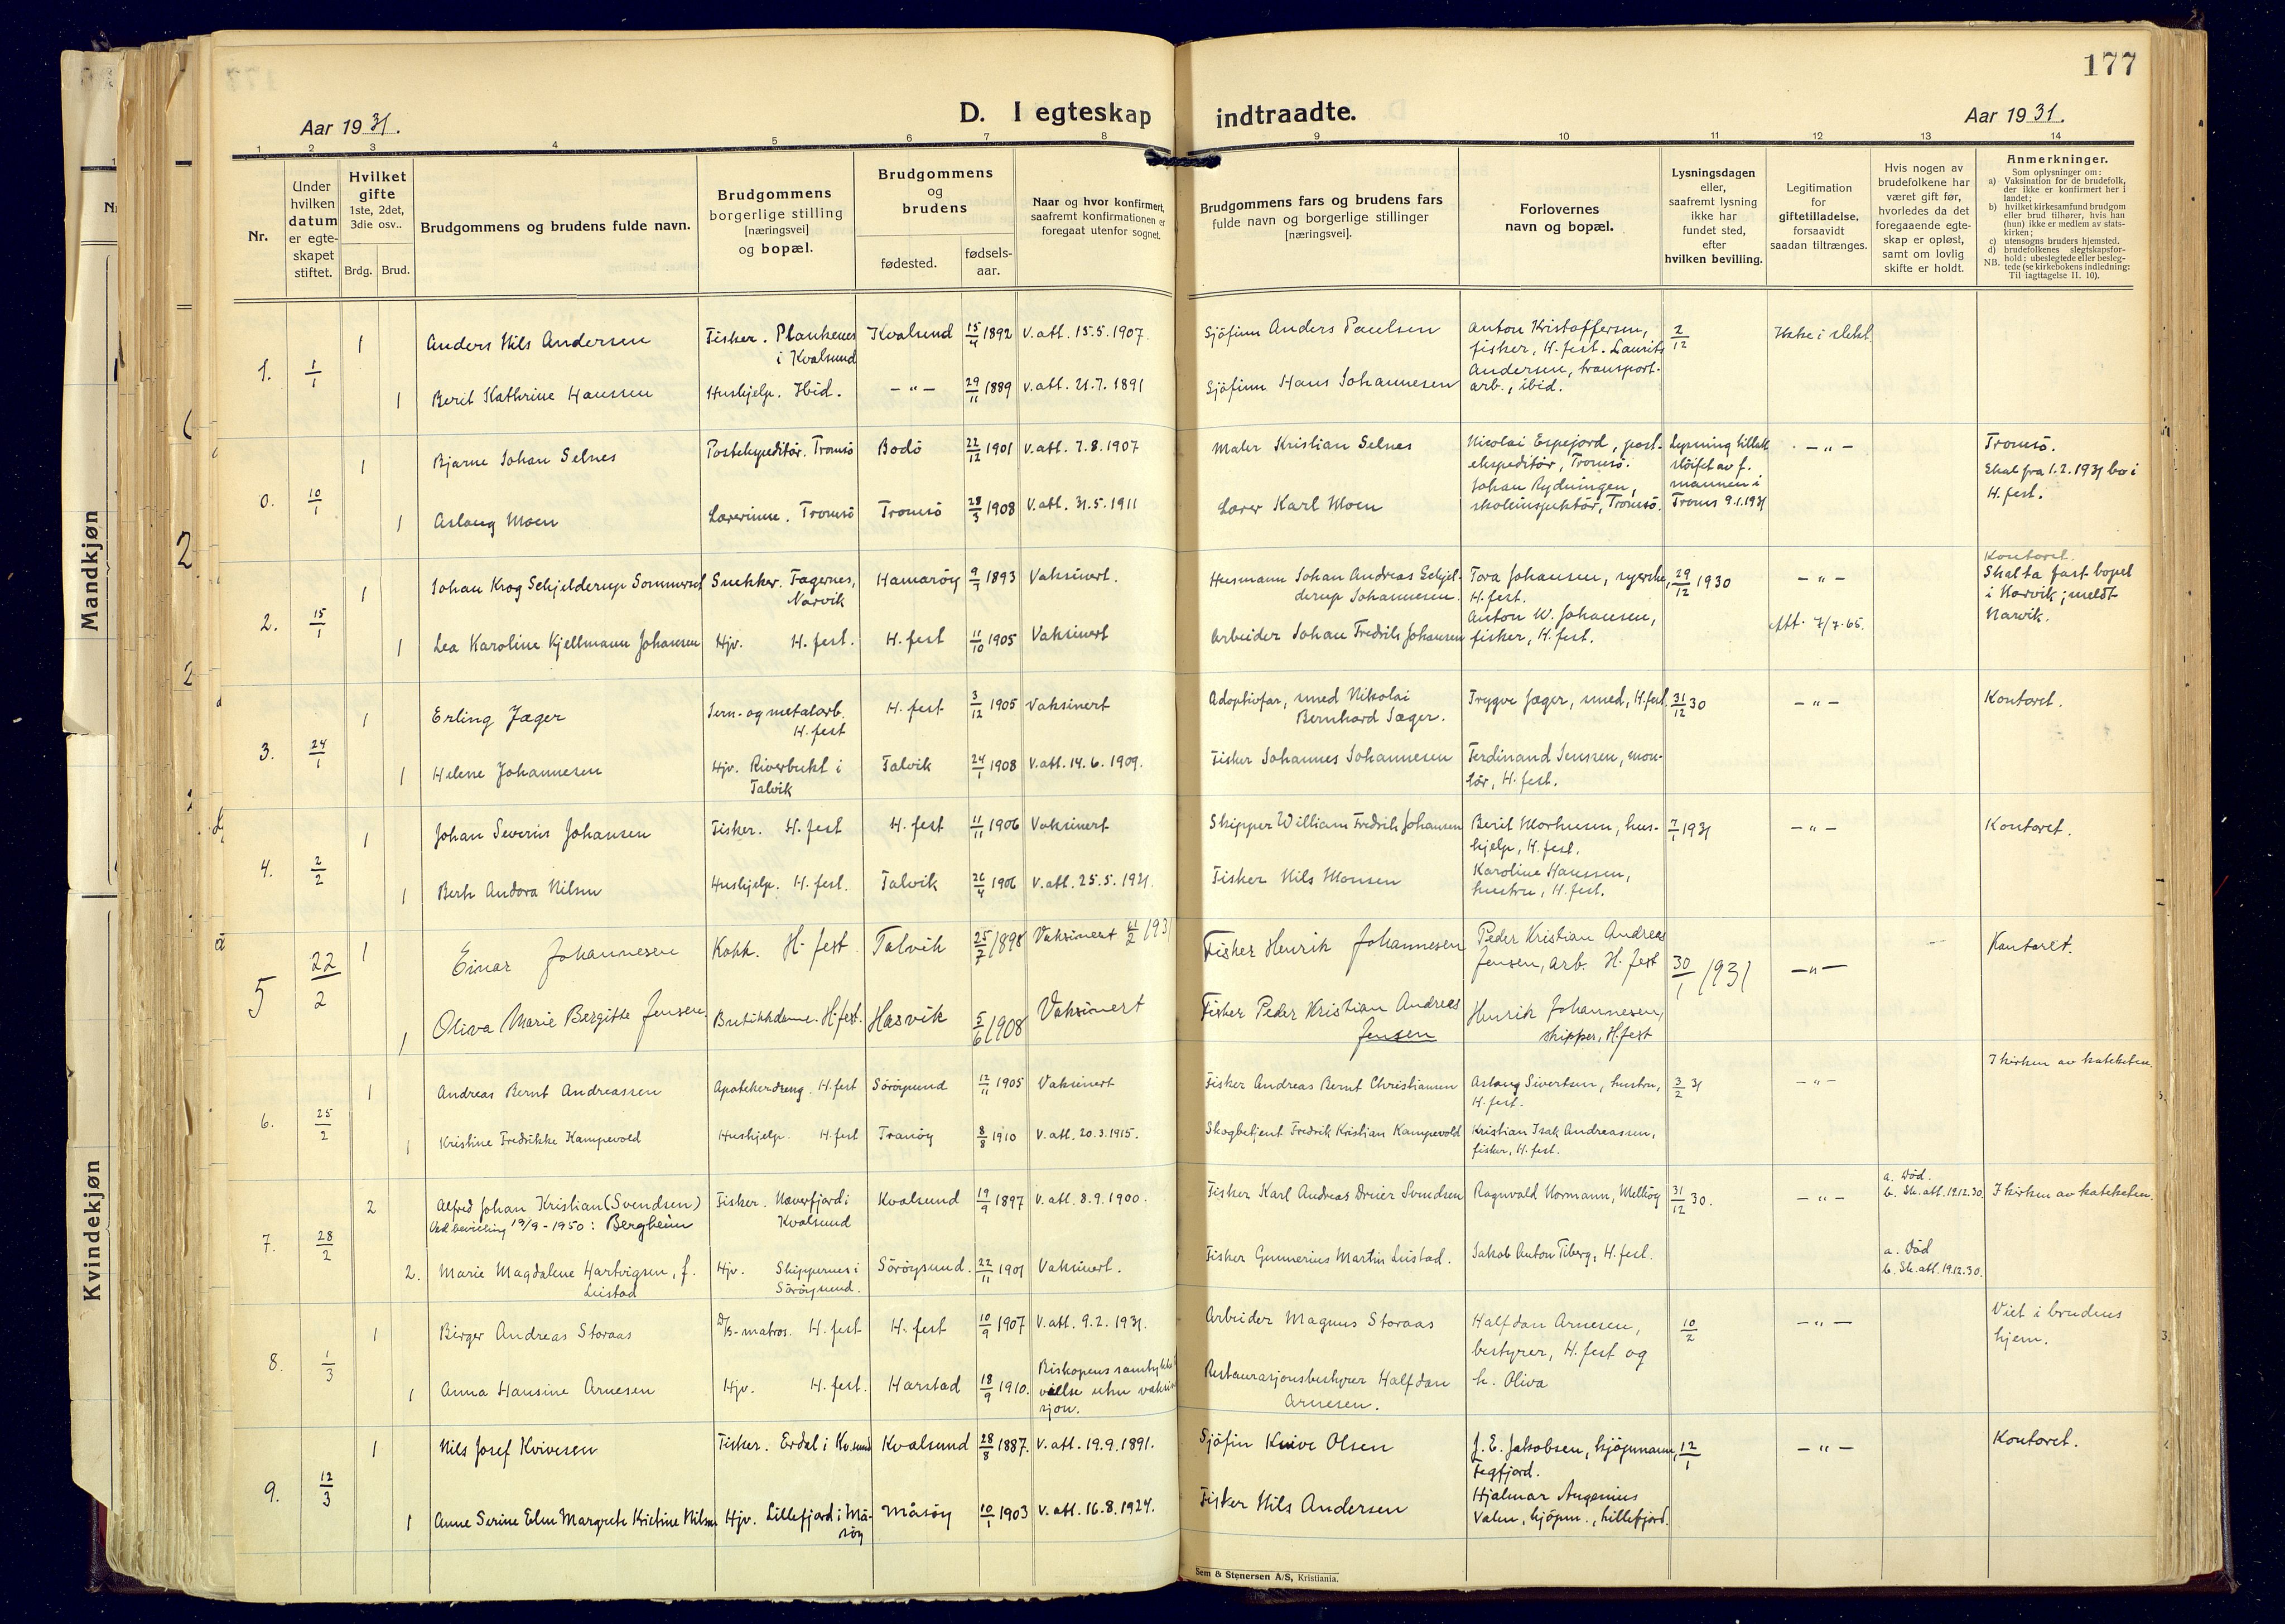 177
Aar 1931.
D. I egteskap indtraadte.
Aar 1931.
1 2 3 4 5 6 7 8 9 10 11 12 13 14
Nr.
Under hvilken datum er egteskapet stiftet.
Hvilket gifte 1ste, 2det, 3die osv..
Brdg. Brud.
Brudgommens og brudens fulde navn.
Brudgommens borgerlige stilling [næringsvei] og bopæl.
Brudgommens og brudens
fødested.
fødselsaar.
Naar og hvor konfirmert, saafremt konfirmationen er foregaat utenfor sognet.
Brudgommens fars og brudens fars fulde navn og borgerlige stillinger [næringsvei].
Forlovernes navn og bopæl.
Lysningsdagen eller, saafremt lysning ikke har fundet sted, efter hvilken bevilling.
Legitimation for giftetilladelse, forsaavidt saadan tiltrænges.
Hvis nogen av brudefolkene har været gift før, hvorledes da det foregaaende egteskap er opløst, samt om lovlig skifte er holdt.
Anmerkninger.
Som oplysninger om:
a) Vaksination for de brudefolk, der ikke er konfirmert her i landet;
b) hvilket kirkesamfund brudgom eller brud tilhører, hvis han (hun) ikke er medlem av statskirken;
c) utensogns bruders hjemsted.
d) brudefolkenes slegtskapsforhold: ubeslegtede eller beslegtede (se kirkebokens indledning: Til iagttagelse II. 10).
NB.
1. 1/1
1 Anders Nils Andersen Fisker. Plankenes i Kvalsund Kvalsund 15/4 1892 V.att. 15.5.1907. Sjöfinn Anders Paulsen Anton Kristoffersen, fisker, H.fest. Laurits 2/12 Ikke i slekt.
1 Berit Kathrine Hanssen Hushjelp. Ibid. -"- 29/11 1889 V.att. 21.7.1891 Sjöfinn Hans Johannesen Andersen, transportarb., ibid.
0. 10/1
1 Bjarne Johan Selnes Postekspeditör. Tromsö Bodö 22/12 1901 V.att. 7.8.1907 Maler Kristian Selnes Nicolai Espejord, postekspeditör, Tromsö. -"- Tromsö. Skal fra 1.2.1931 bo i H.fest.
1 Aslaug Moen Lærerinne. Tromsö Tromsö 28/3 1908 V.att. 31.5.1911 Lærer Karl Moen Johan Rydningen, skoleinspektör, Tromsö. Troms 9.1.1931
2. 15/1
1 Johan Krog Schjelderup Sommerset Snekker. Fagernes, Narvik Hamaröy 9/7 1893 Vaksinert. Husmann Johan Andreas Schjelderup Johannesen. Tora Johansen, syerske, H.fest. 29/12 1930 -"- Kontoret. Skal ta fast bopel i Narvik; meldt Narvik.
1 Lea Karoline Kjellmann Johansen Hjv. H.fest. H.fest 11/10 1905 Vaksinert Arbeider Johan Fredrik Johansen Anton W. Johansen, fisker, H.fest. Att. 7/7-65.
3. 24/1
1 Erling Jæger Jern- og metalarb. H.fest H.fest 3/12 1905 Vaksinert Adoptivfar, smed Nikolai Bernhard Jæger. Trygve Jæger, smed, H.fest 31/12 30 -"- Kontoret.
1 Helene Johannesen Hjv. Riverbukt i Talvik Talvik 24/1 1908 V.att. 14.6.1909. Fisker Johannes Johannesen Ferdinand Jenssen, montör, H.fest.
4. 2/2
1 Johan Severin Johansen Fisker. H.fest H.fest 11/11 1906 Vaksinert Skipper William Fredrik Johansen Berit Morhusen, hushjelp, H.fest. 7/1 1931 -"- Kontoret.
1 Berit Andora Nilsen Hushjelp. H.fest. Talvik 26/4 1906 V.att. 25.5.1921. Fisker Nils Monsen Karoline Hanssen, hustru, H.fest.
5 22/2
1 Einar Johannesen Kokk. H-fest Talvik 25/7 1898 Vaksinert 11/2 1931 Fisker Henrik Johannesen Peder Kristian Andreas Jensen, arb. H.fest 30/1 1931 -"- Kontoret.
1 Oliva Marie Bergitte Jensen Butikkdame. H-fest. Hasvik 5/6 1908 Vaksinert Fisker Peder Kristian Andreas Jensen Henrik Johannesen, skipper, H.fest
6. 25/2
1 Andreas Bernt Andreassen Apotekerdreng. H.fest Söröysund 12/11 1905 Vaksinert Fisker Andreas Bernt Christiansen Aslaug Sivertsen, hustru, H.fest. 3/2 31 -"- I kirken av kateketen.
1 Kristine Fredrikke Kampevold Hushjelp. H.fest Tranöy 8/8 1910 V.att. 20.3.1915. Skogbetjent Fredrik Kristian Kampevold Kristian Isak Andreassen, fisker, H.fest.
7. 28/2
2 Alfred Johan Kristian (Svendsen) Ved bevilling 19/9-1950: Bergheim Fisker. Næverfjord i Kvalsund Kvalsund 19/9 1897 V.att. 8.9.1900. Fisker Karl Andreas Dreier Svendsen Ragnvald Normann, Melköy 31/12 30. -"- a. Död. b. Sk.att. 19.12.30. I kirken av kateketen.
2. Marie Magdalene Hartvigsen, f. Leistad Hjv. Skippernes i Söröysund. Söröysund. 22/11 1901 Vaksinert. Fisker Gunnerius Martin Leistad. Jakob Anton Tiberg, H.fest. a. Död b. Sk.att. 19.12.30.
8. 1/3
1 Birger Andreas Storaas D/S-matros. H.fest H.fest 10/9 1907 V.att. 9.2.1931. Arbeider Magnus Storaas Halfdan Arnesen, bestyrer, H.fest og 10/2 -"- Viet i brudens hjem.
1 Anna Hansine Arnesen Hjv. H.fest. Harstad 18/9 1910. Biskopens samtykke vielse uten vaksinasjon. Restaurasjonsbestyrer Halfdan Arnesen. h. Oliva
9. 12/3
1 Nils Josef Kvivesen Fisker. Erdal i Kv.sund Kvalsund 28/8 1887. V.att. 19.9.1891. Sjöfin Kvive Olsen J.E. Jakobsen, kjöpmann, Fegfjord. 12/1 -"- Kontoret.
1 Anne Serine Elen Margrete Kristine Nilsen Hjv. Lillefjord i Måsöy Måsöy 10/1 1903 V.att. 16.8.1924. Fisker Nils Andersen Hjalmar Augenius Valen, kjöpm., Lillefjord.
Sem & Stenersen A/S, Kristiania.
Mandkjøn
Kvindekjøn